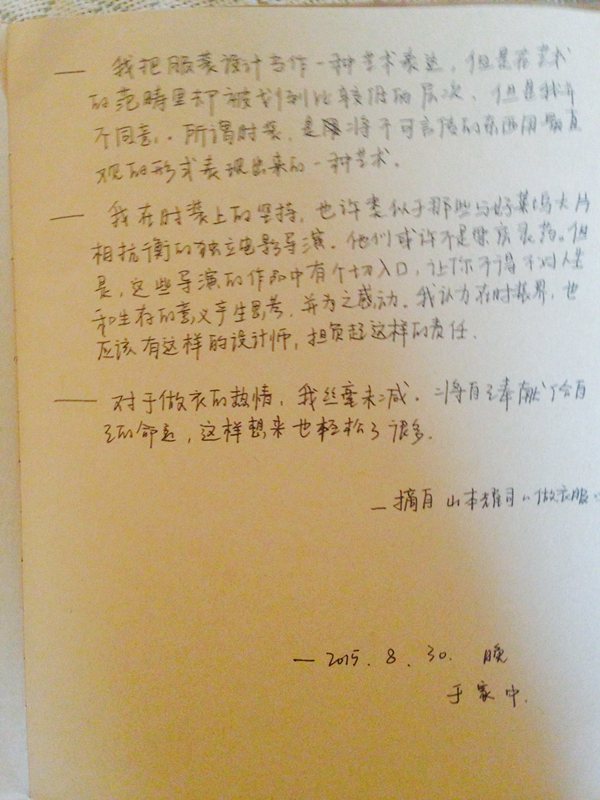 —— 我把服装设计当作一种艺术表达，但是在艺术
的范畴里却被划到比较低的层次，但是我并
不同意。所谓时装，是将不可言传的东西用最直
观的形式表现出来的一种艺术。
—— 我在时装上的坚持，也许类似于那些与好莱坞大片
相抗衡的独立电影导演。他们或许不是票房灵药。但
是，这些导演的作品中有个切入口，让你不得不对人生
和生存的意义产生思考，并为之感动。我认为在时装界，也
应该有这样的设计师，担负起这样的责任。
—— 对于做衣的热情，我丝毫未减。将自己奉献给自
己的命运，这样想来也轻松了很多。
—摘自 山本耀司《做衣服》
—2015.8.30. 晚
于家中.